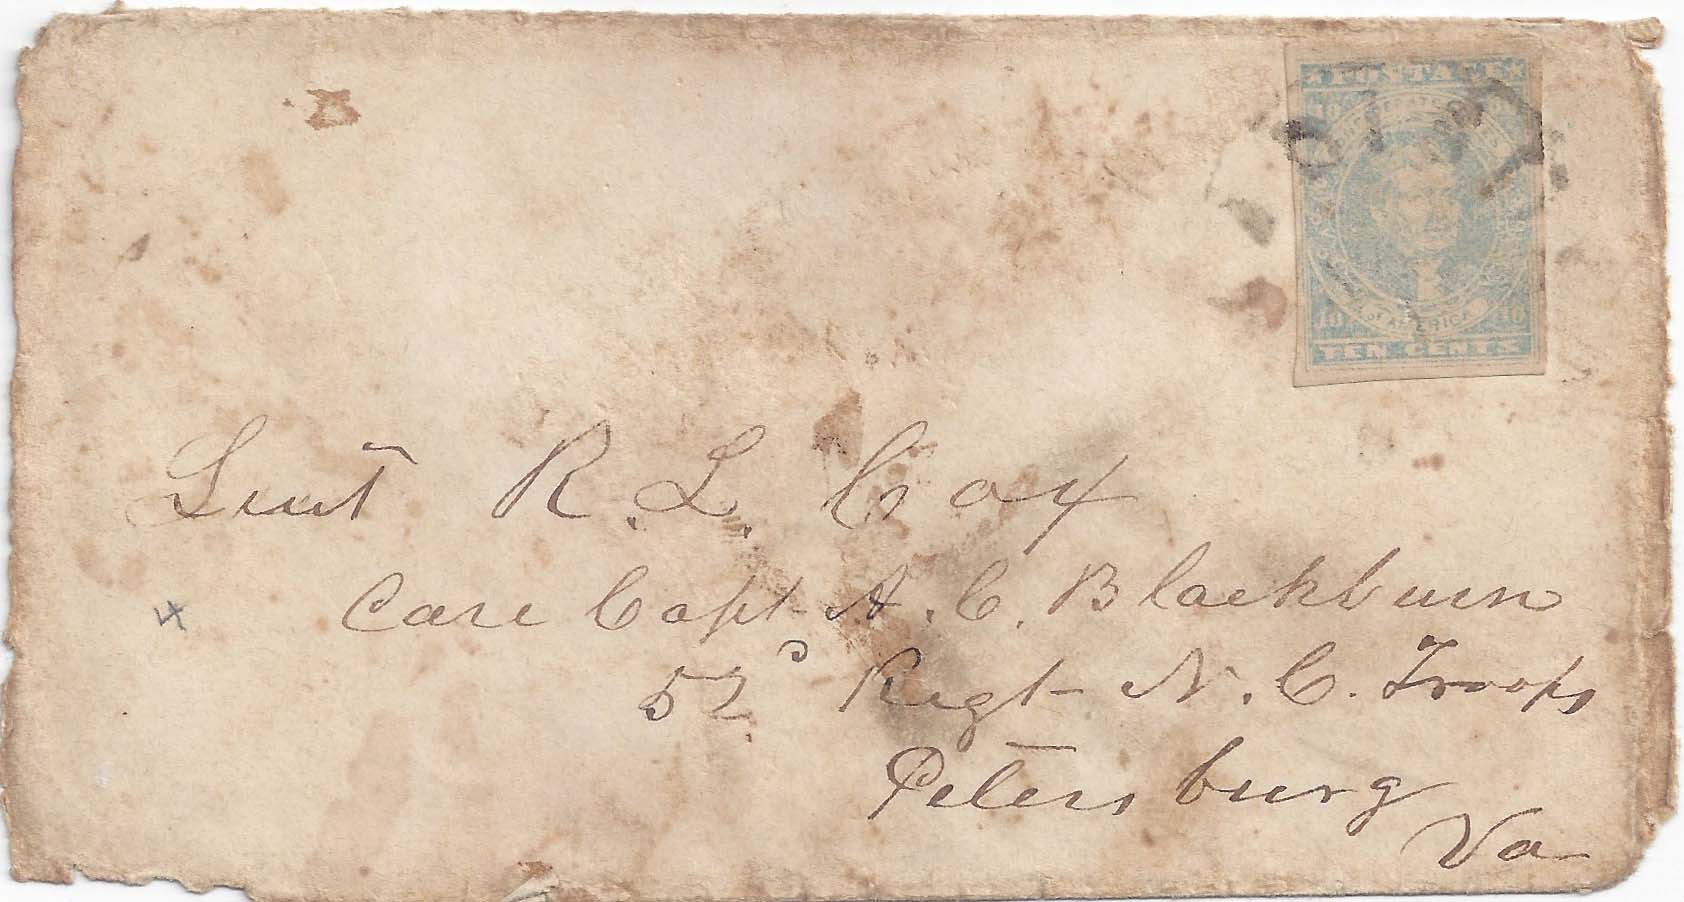 POSTAGE
10 10
OF AMERICA
TEN CENTS
Lieut R. L. Cox
Care Capt A. C. Blackburn
52d Regt N. C. Troops
Petersburg
Va
4